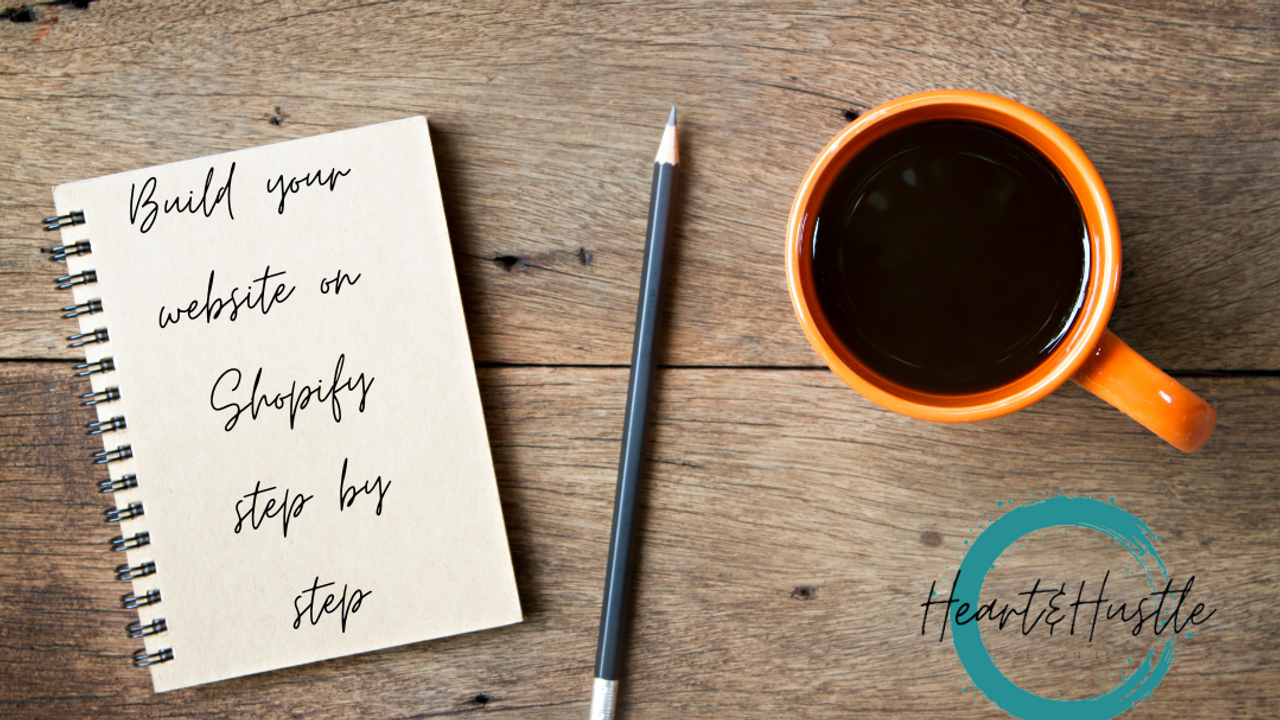 Build your
website on
Shopify
step by
step
Heart&Hustle